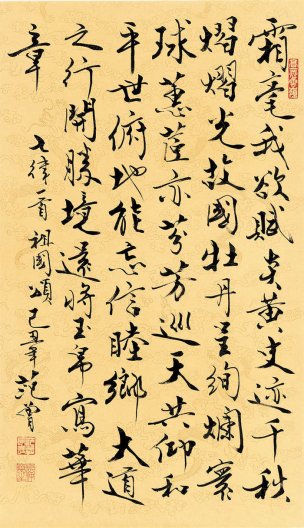 霜毫我欲賦炎黃史迹千秋
熠熠光故國牡丹呈絢爛寰
球蕙茝亦芬芳巡天共仰和
平世俯地能忘信睦鄉大道
之行開勝境還將玉帛寫華
章
七律一首祖國頌己丑年范曾